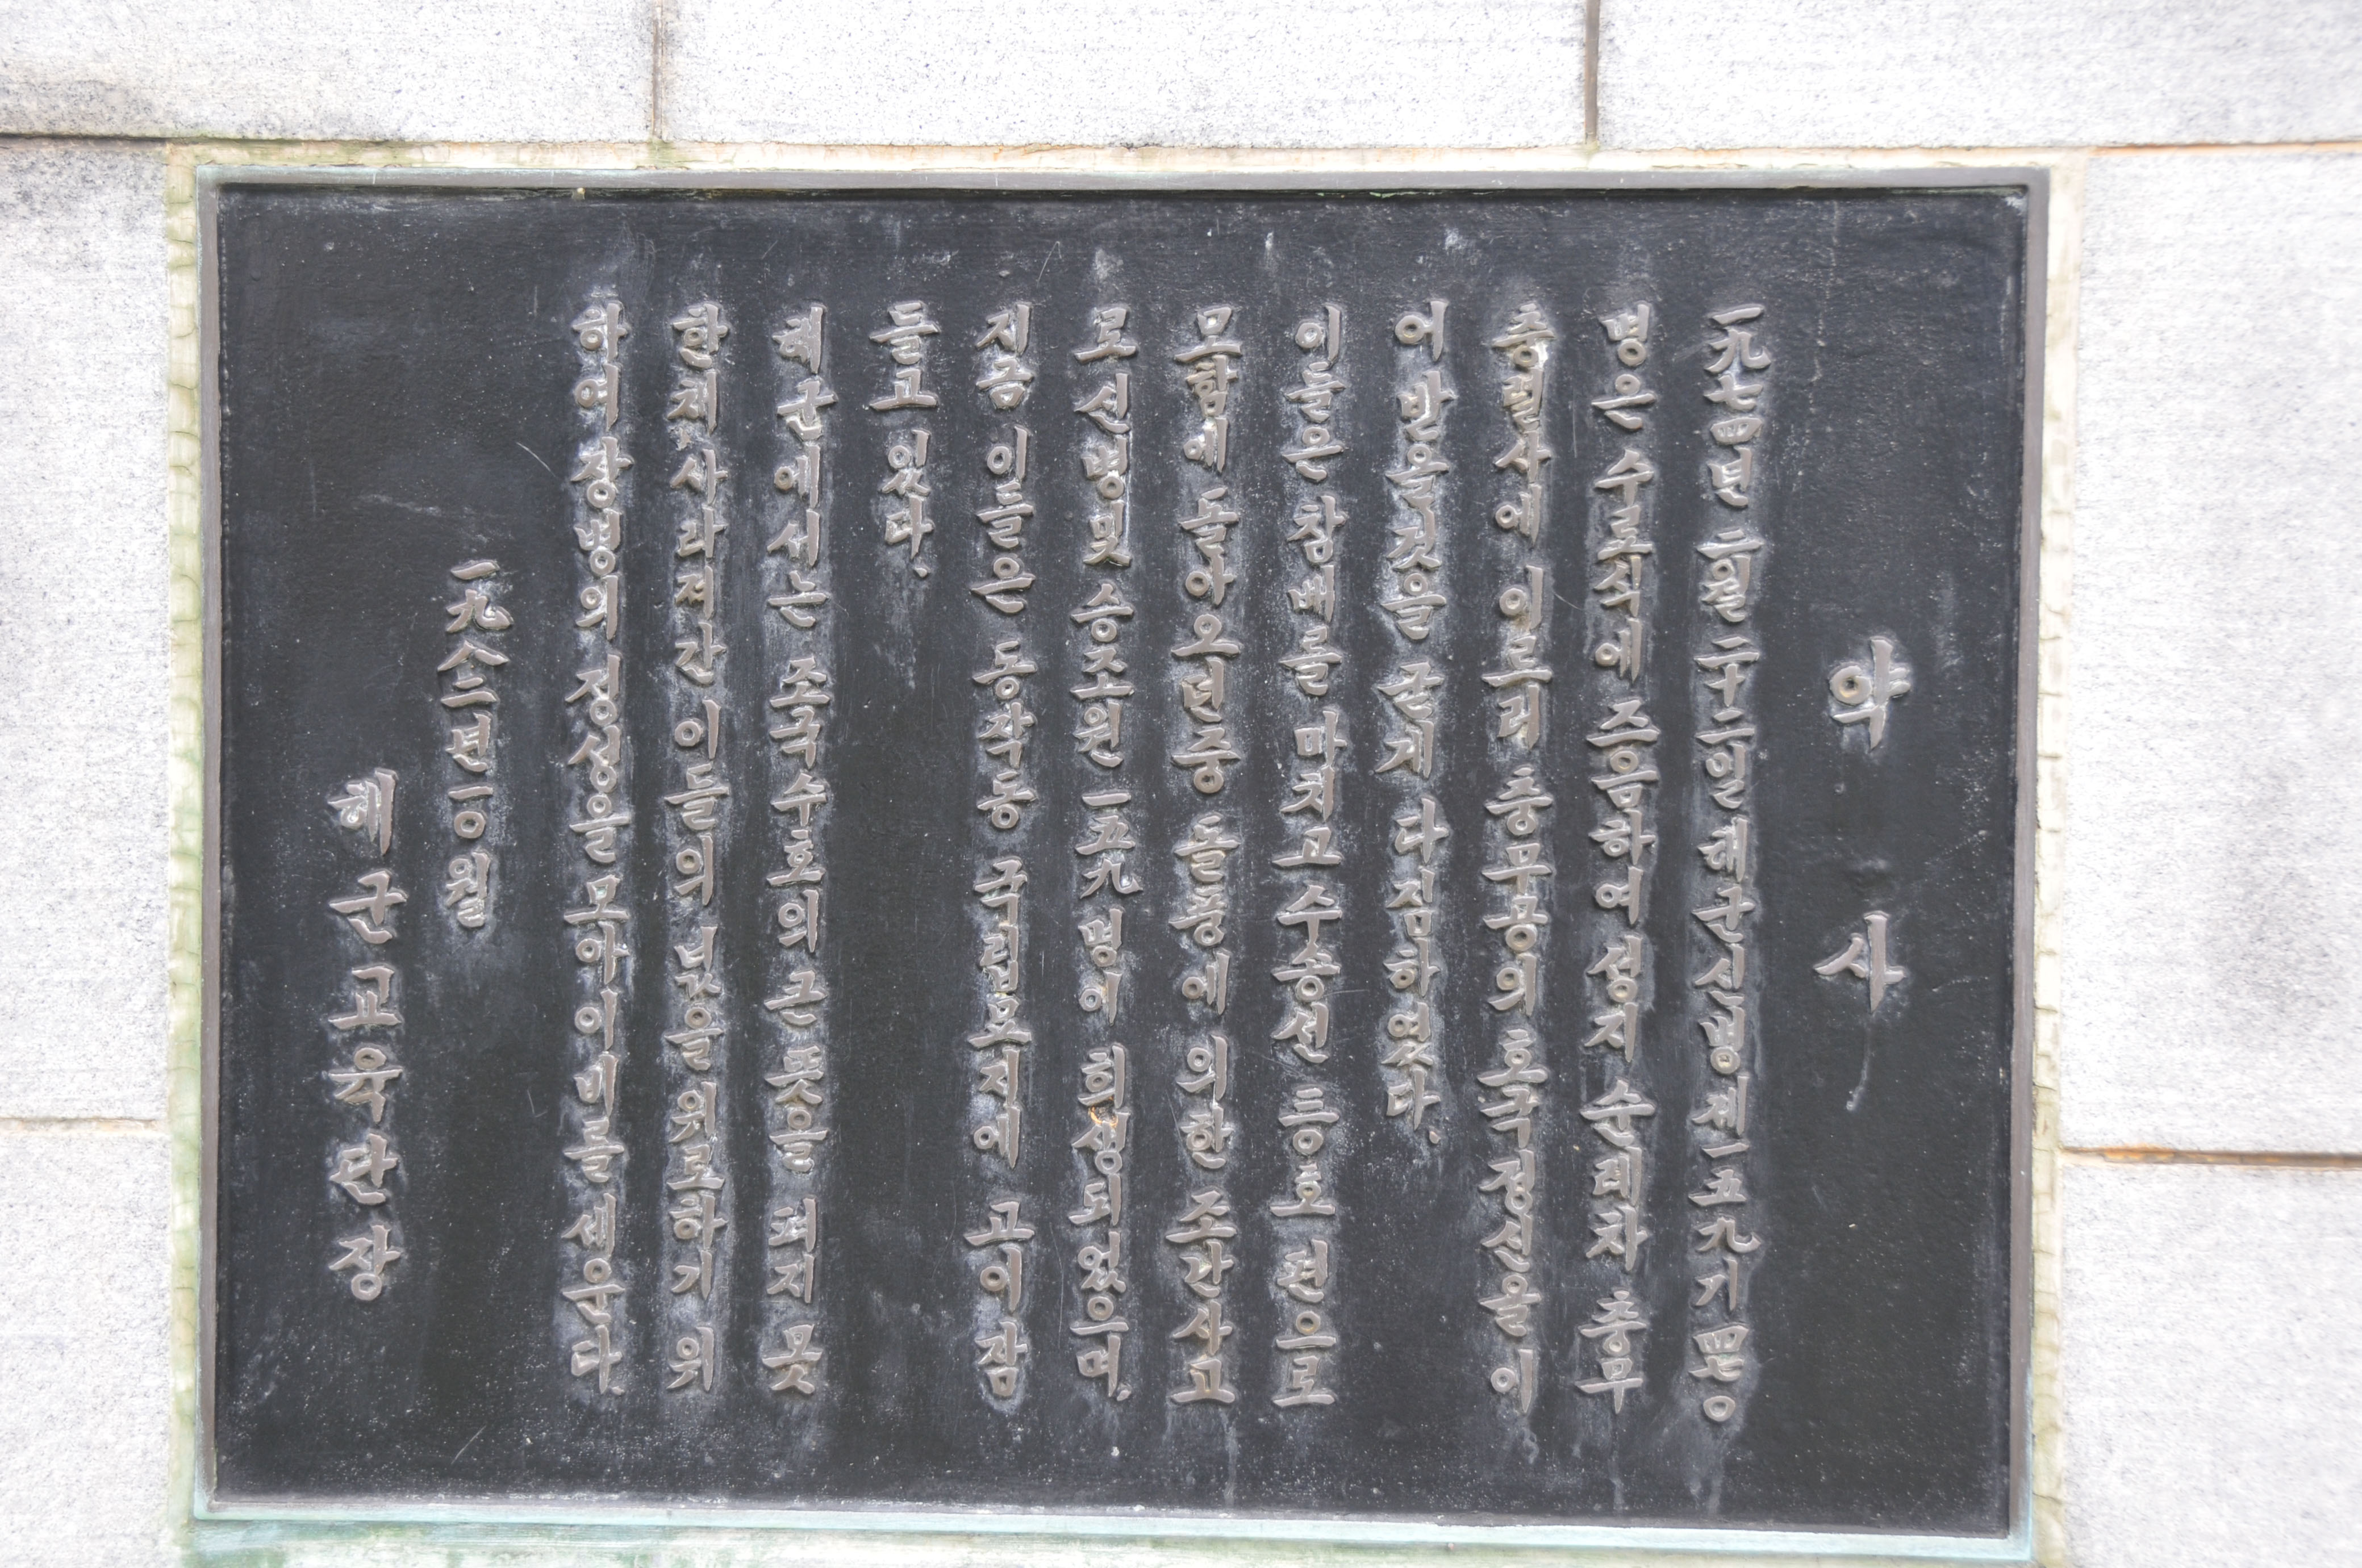 약 사
一九七四년 二월 二十二일 해군신병제一五九기 四百
명은 수료식에 즈음하여 성지 순례차 충무
충렬사에 이르러 충무공의 호국정신을 이
어 받을것을 굳게 다짐하였다.
이들은 참배를 마치고 수송선 등호 편으로
모함에 돌아오던중 돌풍에 의한 조난사고
로 신병및 승조원 一五九명이 희생되었으며,
지금 이들은 동작동 국립묘지에 고이 잠
들고 있다.
해군에서는 조국수호의 큰 뜻을 펴지 못
한채 사라져간 이들의 넋을 위로하기 위
하여 장병의 정성을 모아 이 비를 세운다.
一九八二년 一○월
해군교육단장